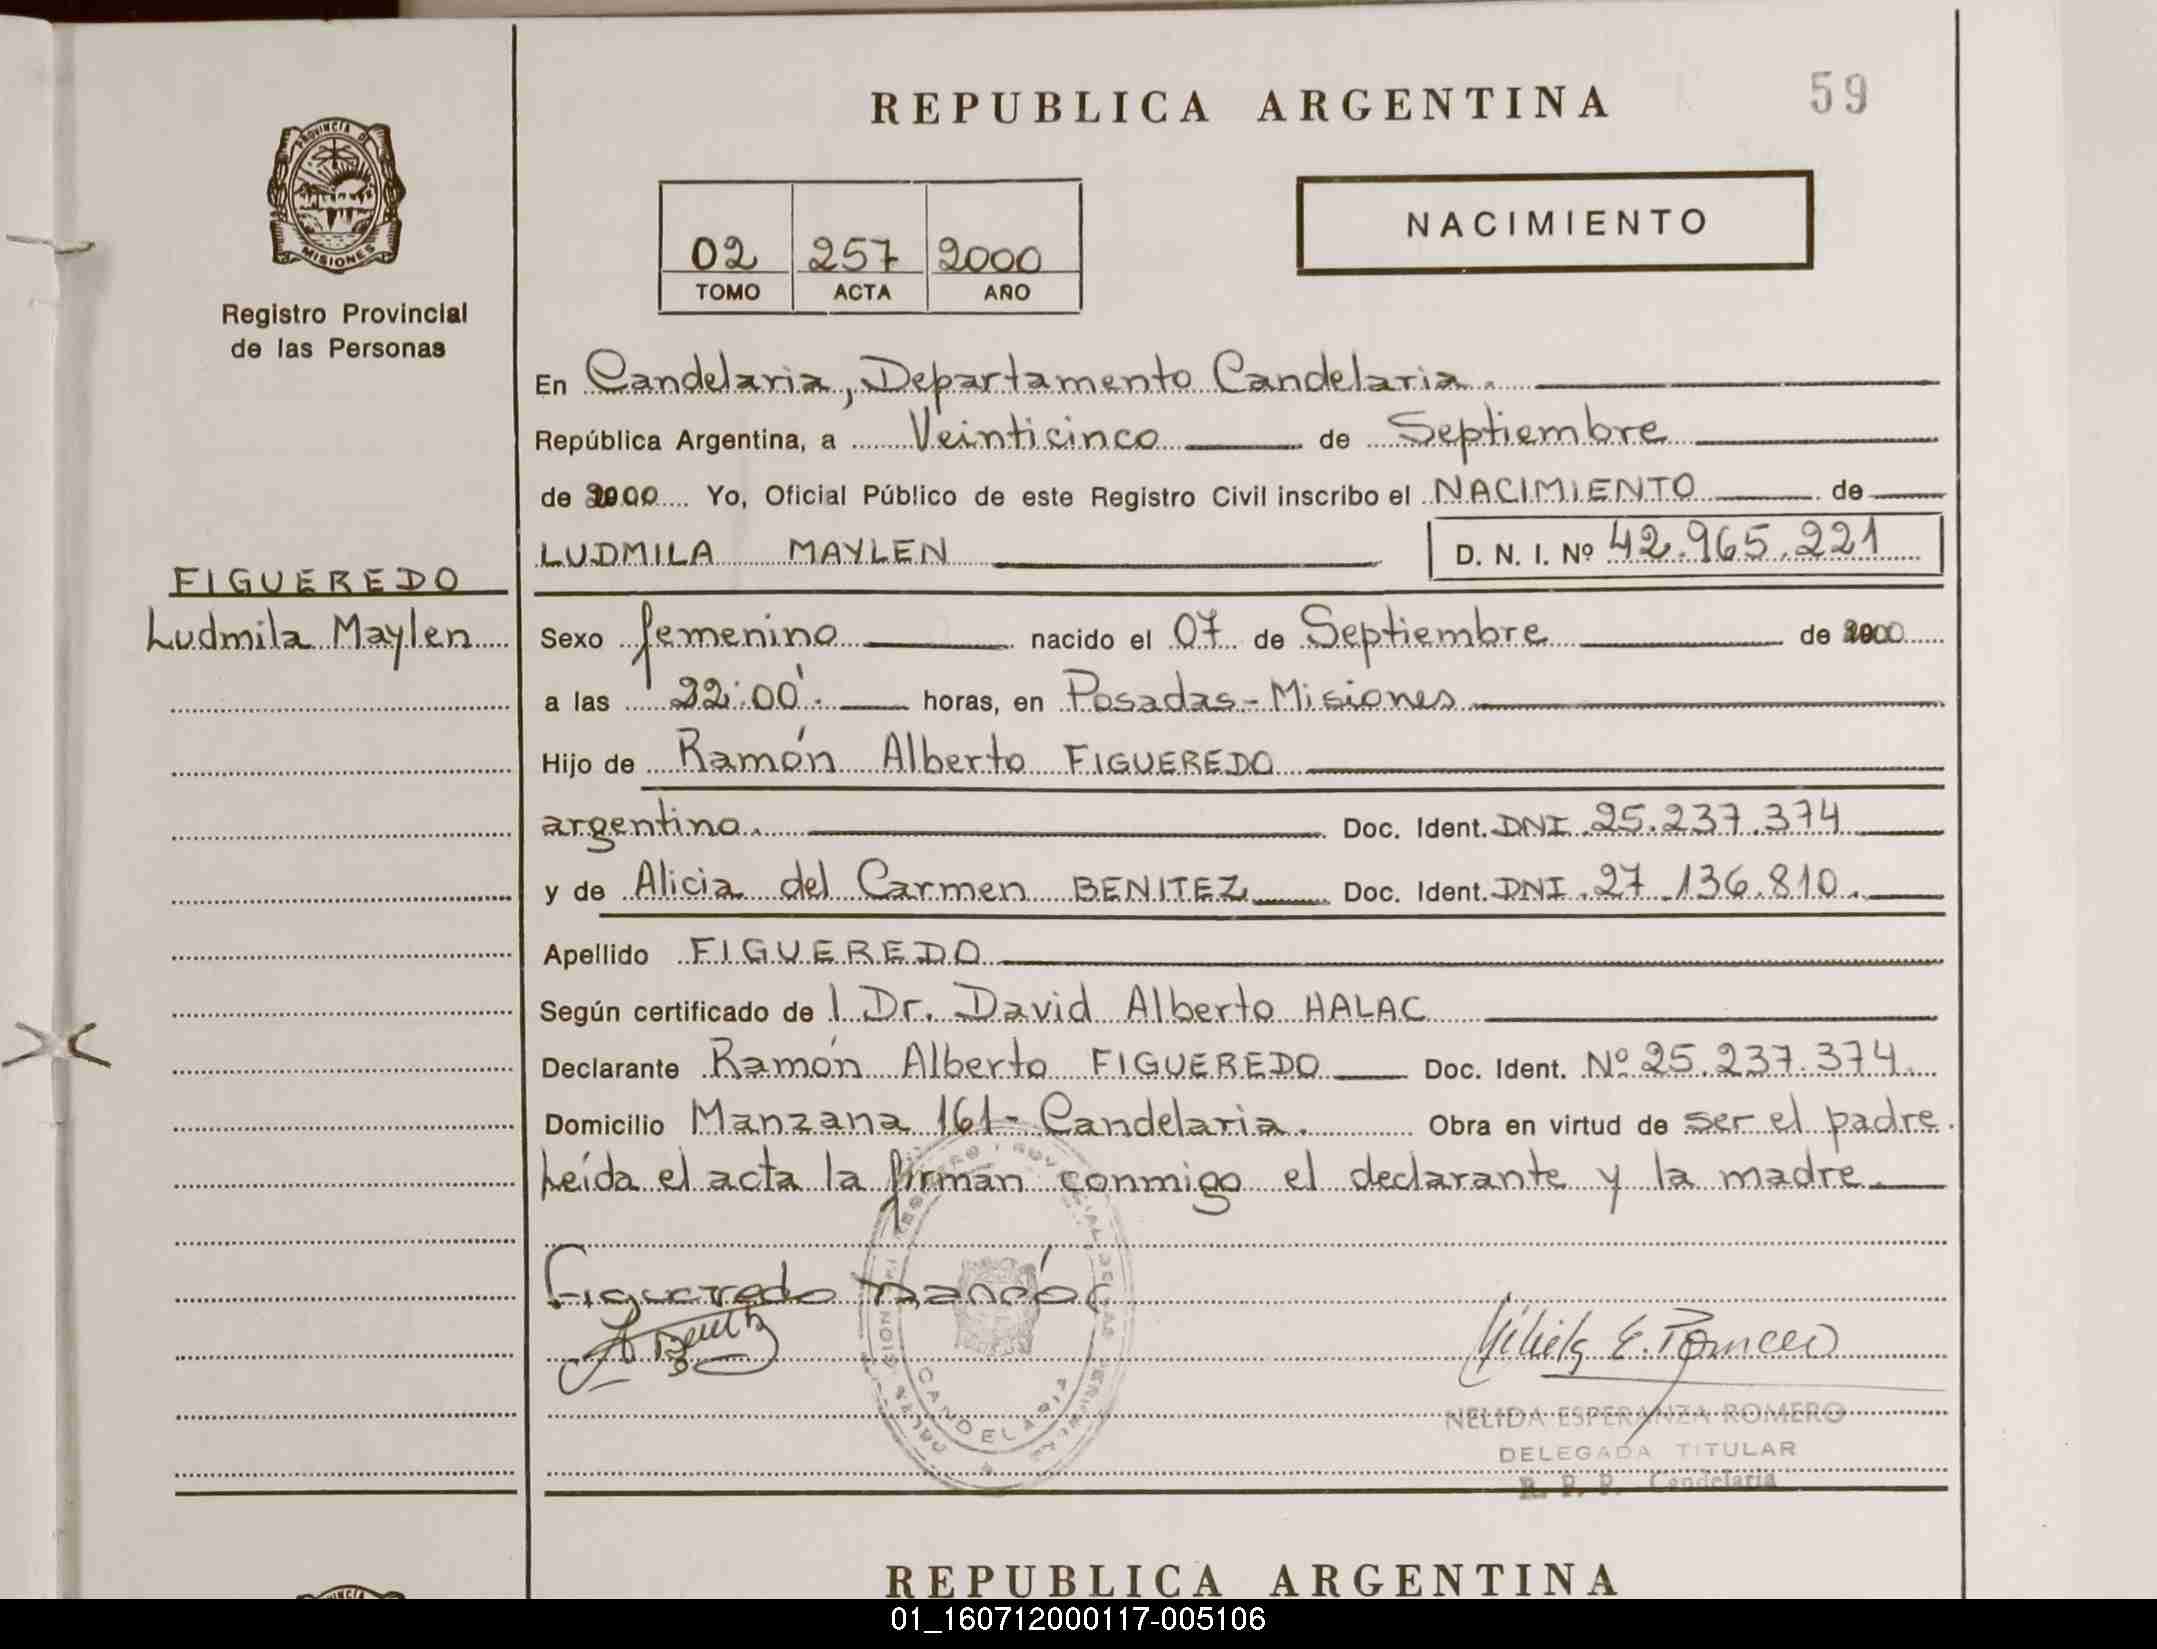 REPUBLICA ARGENTINA
59
PROVINCIA DE
MISIONES
Registro Provincial
de las Personas
02 257 2000
TOMO ACTA AÑO
NACIMIENTO
En Candelaria, Departamento Candelaria.
República Argentina, a Veinticinco de Septiembre
de 2000 Yo, Oficial Público de este Registro Civil inscribo el NACIMIENTO de
LUDMILA MAYLEN D. N. I. Nº 42.965.221
FIGUEREDO
Ludmila Maylen
Sexo femenino nacido el 07 de Septiembre de 2000
a las 22:00'. horas, en Posadas-Misiones
Hijo de Ramón Alberto FIGUEREDO
argentino. Doc. Ident. DNI 25.237.374
y de Alicia del Carmen BENITEZ Doc. Ident. DNI. 27.136.810.
Apellido FIGUEREDO
Según certificado de l Dr. David Alberto HALAC
Declarante Ramón Alberto FIGUEREDO Doc. Ident. Nº 25.237.374.
Domicilio Manzana 161- Candelaria. Obra en virtud de ser el padre.
Leída el acta la firman conmigo el declarante y la madre.
Figueredo Ramón
CANDELARIA
E. Romero
NELIDA ESPERANZA ROMERO
DELEGADA TITULAR
R. P. P. Candelaria
REPUBLICA ARGENTINA
01_160712000117-005106